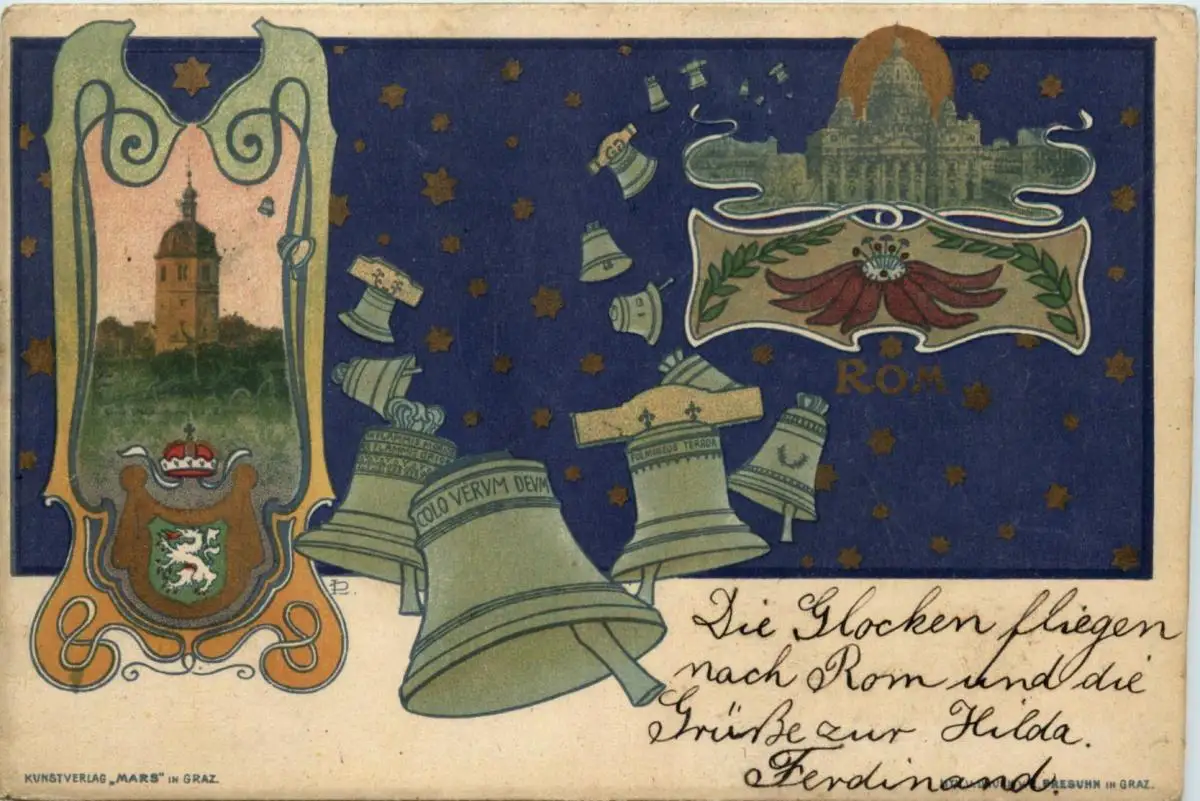 ROM
COLO VERVM DEVM
Die Glocken fliegen
nach Rom und die
Grüße zur Hilda.
Ferdinand.
KUNSTVERLAG „MARS" IN GRAZ.
PRESUHN IN GRAZ.